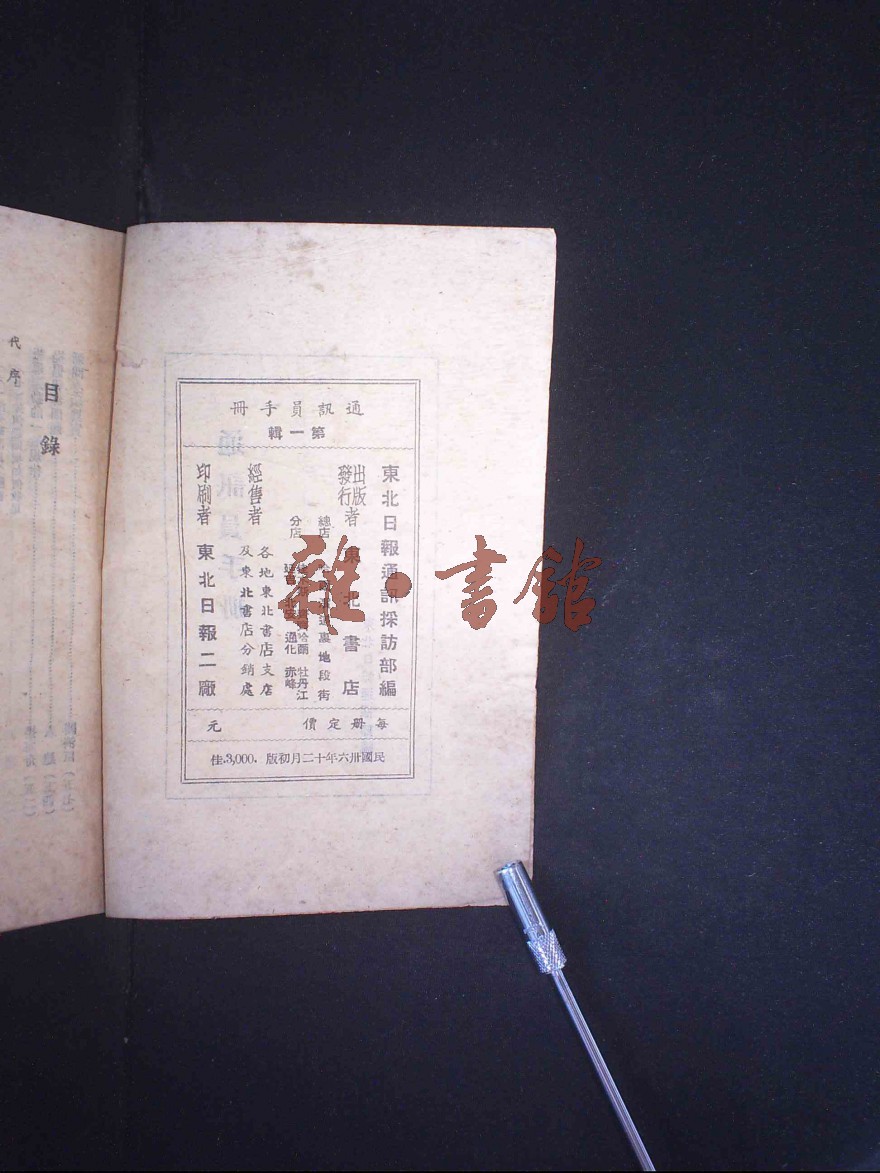 通訊員手冊
第一輯
東北日報通訊採訪部編
出版
發行者 東北書店
總店
裏地段街
分店
哈爾 牡丹江
通化 赤峰
經售者
各地東北書店支店
及東北書店分銷處
印刷者 東北日報二廠
每册定價 元
民國卅六年十二月初版．3,000.佳
目錄
代序
雜·書館